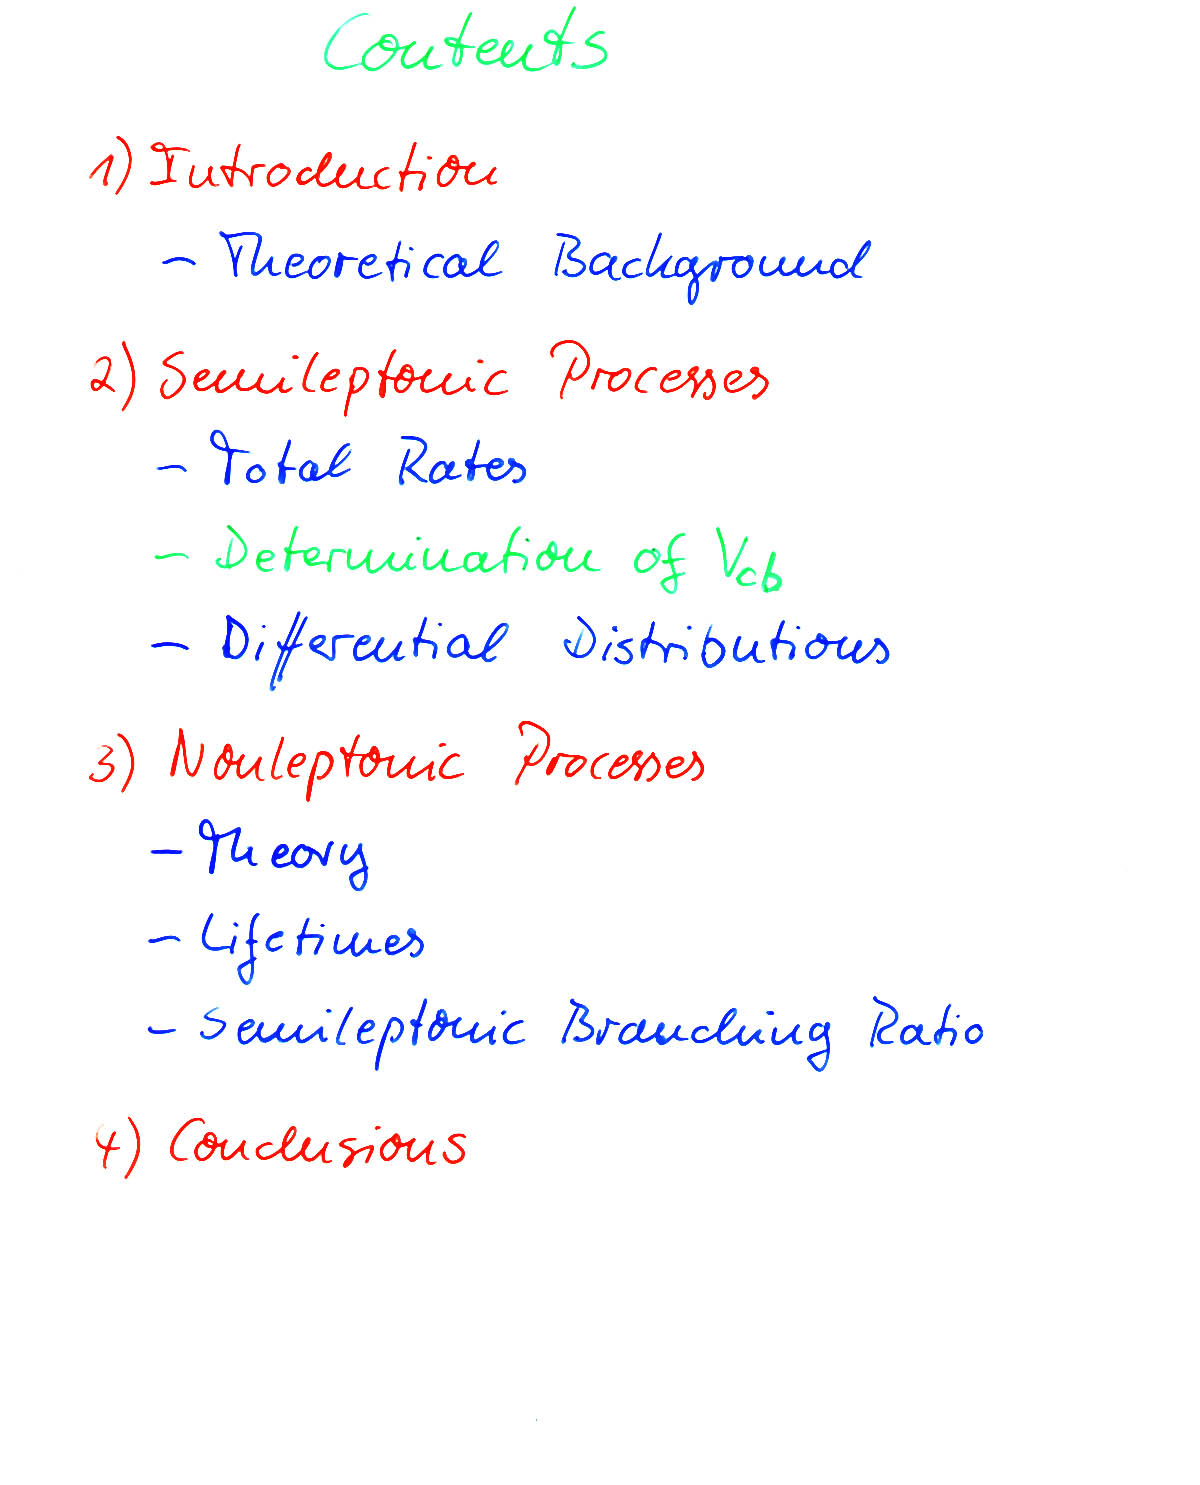 Contents
1) Introduction
- Theoretical Background
2) Semileptonic Processes
- Total Rates
- Determination of Vcb
- Differential Distributions
3) Nonleptonic Processes
- Theory
- Lifetimes
- Semileptonic Branching Ratio
4) Conclusions